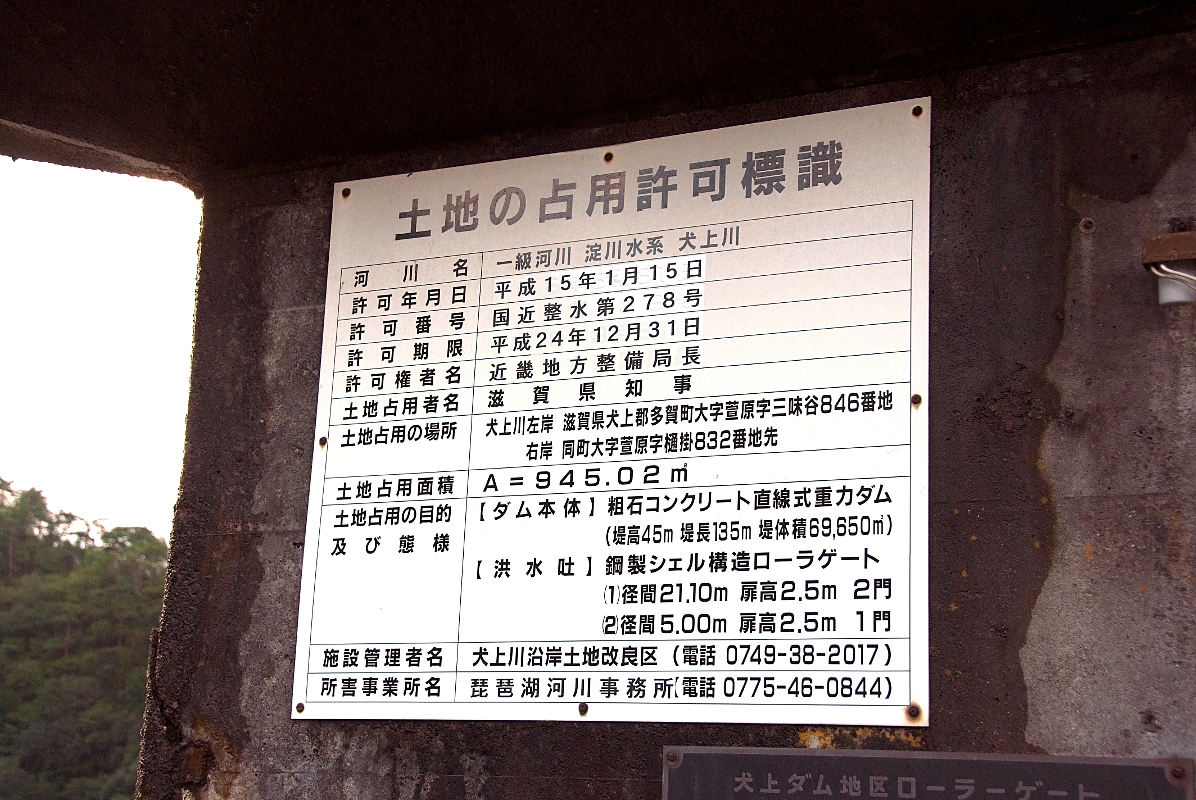 土地の占用許可標識
河川名 一級河川 淀川水系 犬上川
許可年月日 平成15年1月15日
許可番号 国近整水第278号
許可期限 平成24年12月31日
許可権者名 近畿地方整備局長
土地占用者名 滋賀県知事
土地占用の場所 犬上川左岸 滋賀県犬上郡多賀町大字萱原字三味谷846番地
右岸 同町大字萱原字樋掛832番地先
土地占用面積 A=945.02㎡
土地占用の目的 【ダム本体】粗石コンクリート直線式重力ダム
及び態様 (堤高45m 堤長135m 堤体積69,650㎥)
【洪水吐】鋼製シェル構造ローラゲート
⑴径間21.10m 扉高2.5m 2門
⑵径間5.00m 扉高2.5m 1門
施設管理者名 犬上川沿岸土地改良区 (電話 0749-38-2017)
所害事業所名 琵琶湖河川事務所(電話 0775-46-0844)
犬上ダム地区ローラーゲート